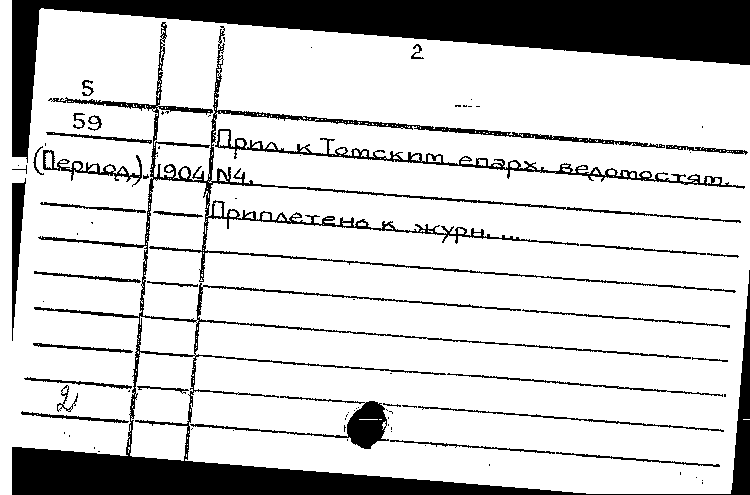 2
5
59
Прил. к Томским епарх. ведомостям.
(Период.) 1904 N4.
Приплетено к журн. ...
2